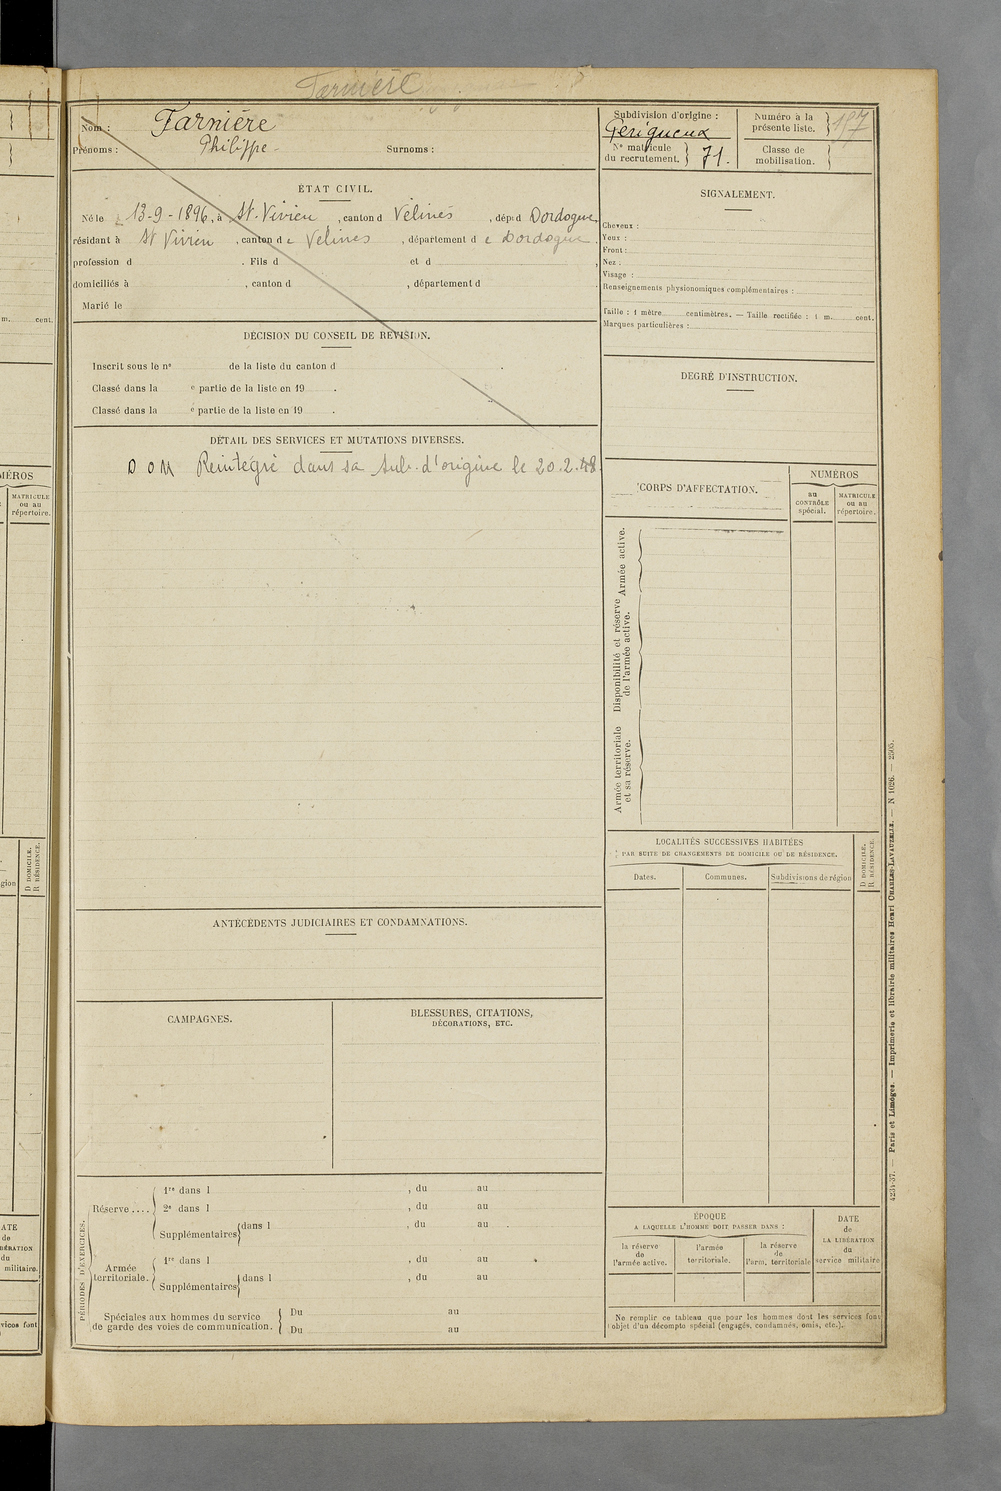 Farnière
Nom : Farnière
Prénoms : Philippe Surnoms :
ÉTAT CIVIL.
Né le 13-9-1896, à St. Vivien, canton d Vélines, dépt d Dordogne,
résidant à St Vivien, canton de Vélines, département de Dordogne.
profession d . Fils d et d ,
domiciliés à , canton d , département d
Marié le
DÉCISION DU CONSEIL DE RÉVISION.
Inscrit sous le nº de la liste du canton d .
Classé dans la e partie de la liste en 19 .
Classé dans la e partie de la liste en 19 .
DÉTAIL DES SERVICES ET MUTATIONS DIVERSES.
D O M Réintégré dans sa sub. d'origine le 20.2.48
ANTÉCÉDENTS JUDICIAIRES ET CONDAMNATIONS.
CAMPAGNES.
BLESSURES, CITATIONS,
DÉCORATIONS, ETC.
PÉRIODES D'EXERCICES.
Réserve....
1re dans l , du au
2e dans l , du au
Supplémentaires dans l , du au
Armée
territoriale.
1re dans l , du au
Supplémentaires dans l , du au
Spéciales aux hommes du service
de garde des voies de communication.
Du au
Du au
Subdivision d'origine :
Périgueux
Nº matricule
du recrutement. 71.
Numéro à la
présente liste. 197
Classe de
mobilisation.
SIGNALEMENT.
Cheveux :
Yeux :
Front :
Nez :
Visage :
Renseignements physionomiques complémentaires :
Taille : 1 mètre centimètres. — Taille rectifiée : 1 m. cent.
Marques particulières :
DEGRÉ D'INSTRUCTION.
CORPS D'AFFECTATION.
NUMÉROS
au
CONTRÔLE
spécial.
MATRICULE
ou au
répertoire.
Armée active.
Disponibilité et réserve
de l'armée active.
Armée territoriale
et sa réserve.
LOCALITÉS SUCCESSIVES HABITÉES
PAR SUITE DE CHANGEMENTS DE DOMICILE OU DE RÉSIDENCE.
D DOMICILE.
R RÉSIDENCE.
Dates.
Communes.
Subdivisions de région
ÉPOQUE
A LAQUELLE L'HOMME DOIT PASSER DANS :
la réserve
de
l'armée active.
l'armée
territoriale.
la réserve
de
l'arm. territoriale
DATE
de
LA LIBÉRATION
du
service militaire
Ne remplir ce tableau que pour les hommes dont les services font
l'objet d'un décompte spécial (engagés, condamnés, omis, etc.).
4234-37. — Paris et Limoges. — Imprimerie et librairie militaires Henri CHARLES-LAVAUZELLE. — N 1026. — 2505.
m. cent.
MÉROS
MATRICULE
ou au
répertoire.
D DOMICILE.
R RÉSIDENCE.
gion
ATE
de
BÉRATION
du
militaire.
vices font